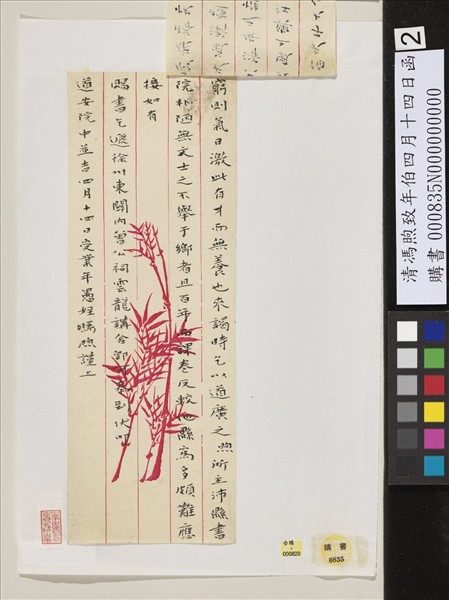 窮則氣日激此有才而無養也來謁時乞以道廣之煦所主沛縣書
院朴陋無文士之不舉于鄉者且百年而課卷反較他縣為多頗難應
接如有
賜書乞遞徐州東關內曾公祠雲龍講舍到伏叩
道安院中並吉四月十四日受業年愚姪馮煦謹上
2
清馮煦致年伯四月十四日函
購書 000835N0000000000
000820
購書
0835